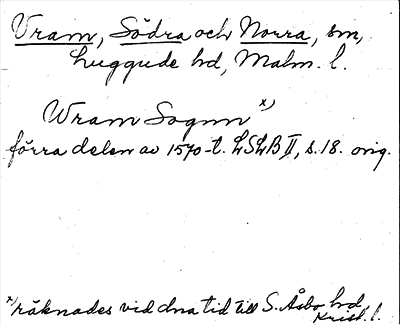 Vram, Södra och Norra, sn,
Luggude hd, Malm. l.
Wram Sognn x)
förra delen av 1570-t. LSLB II, s. 18. orig.
x) räknades vid dna tid till S. Åsbo hd,
Krist. l.